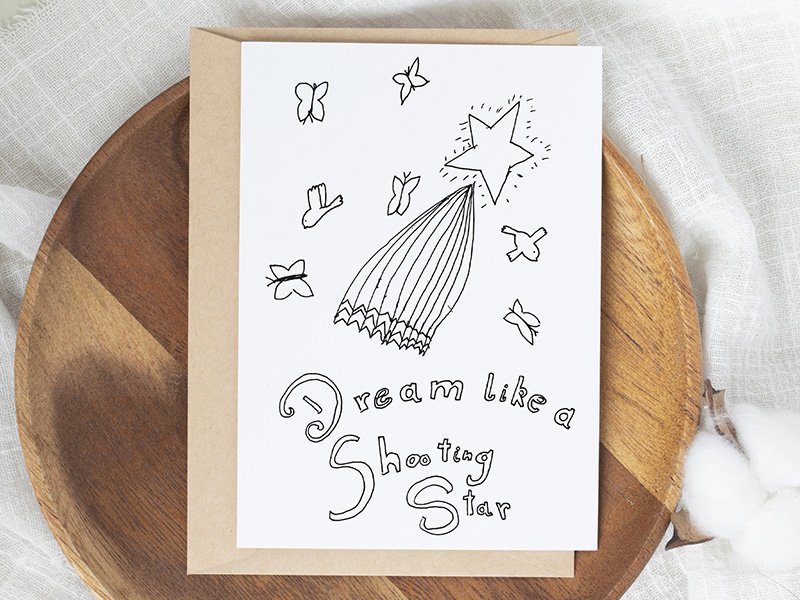 Dream like a
Shooting
Star